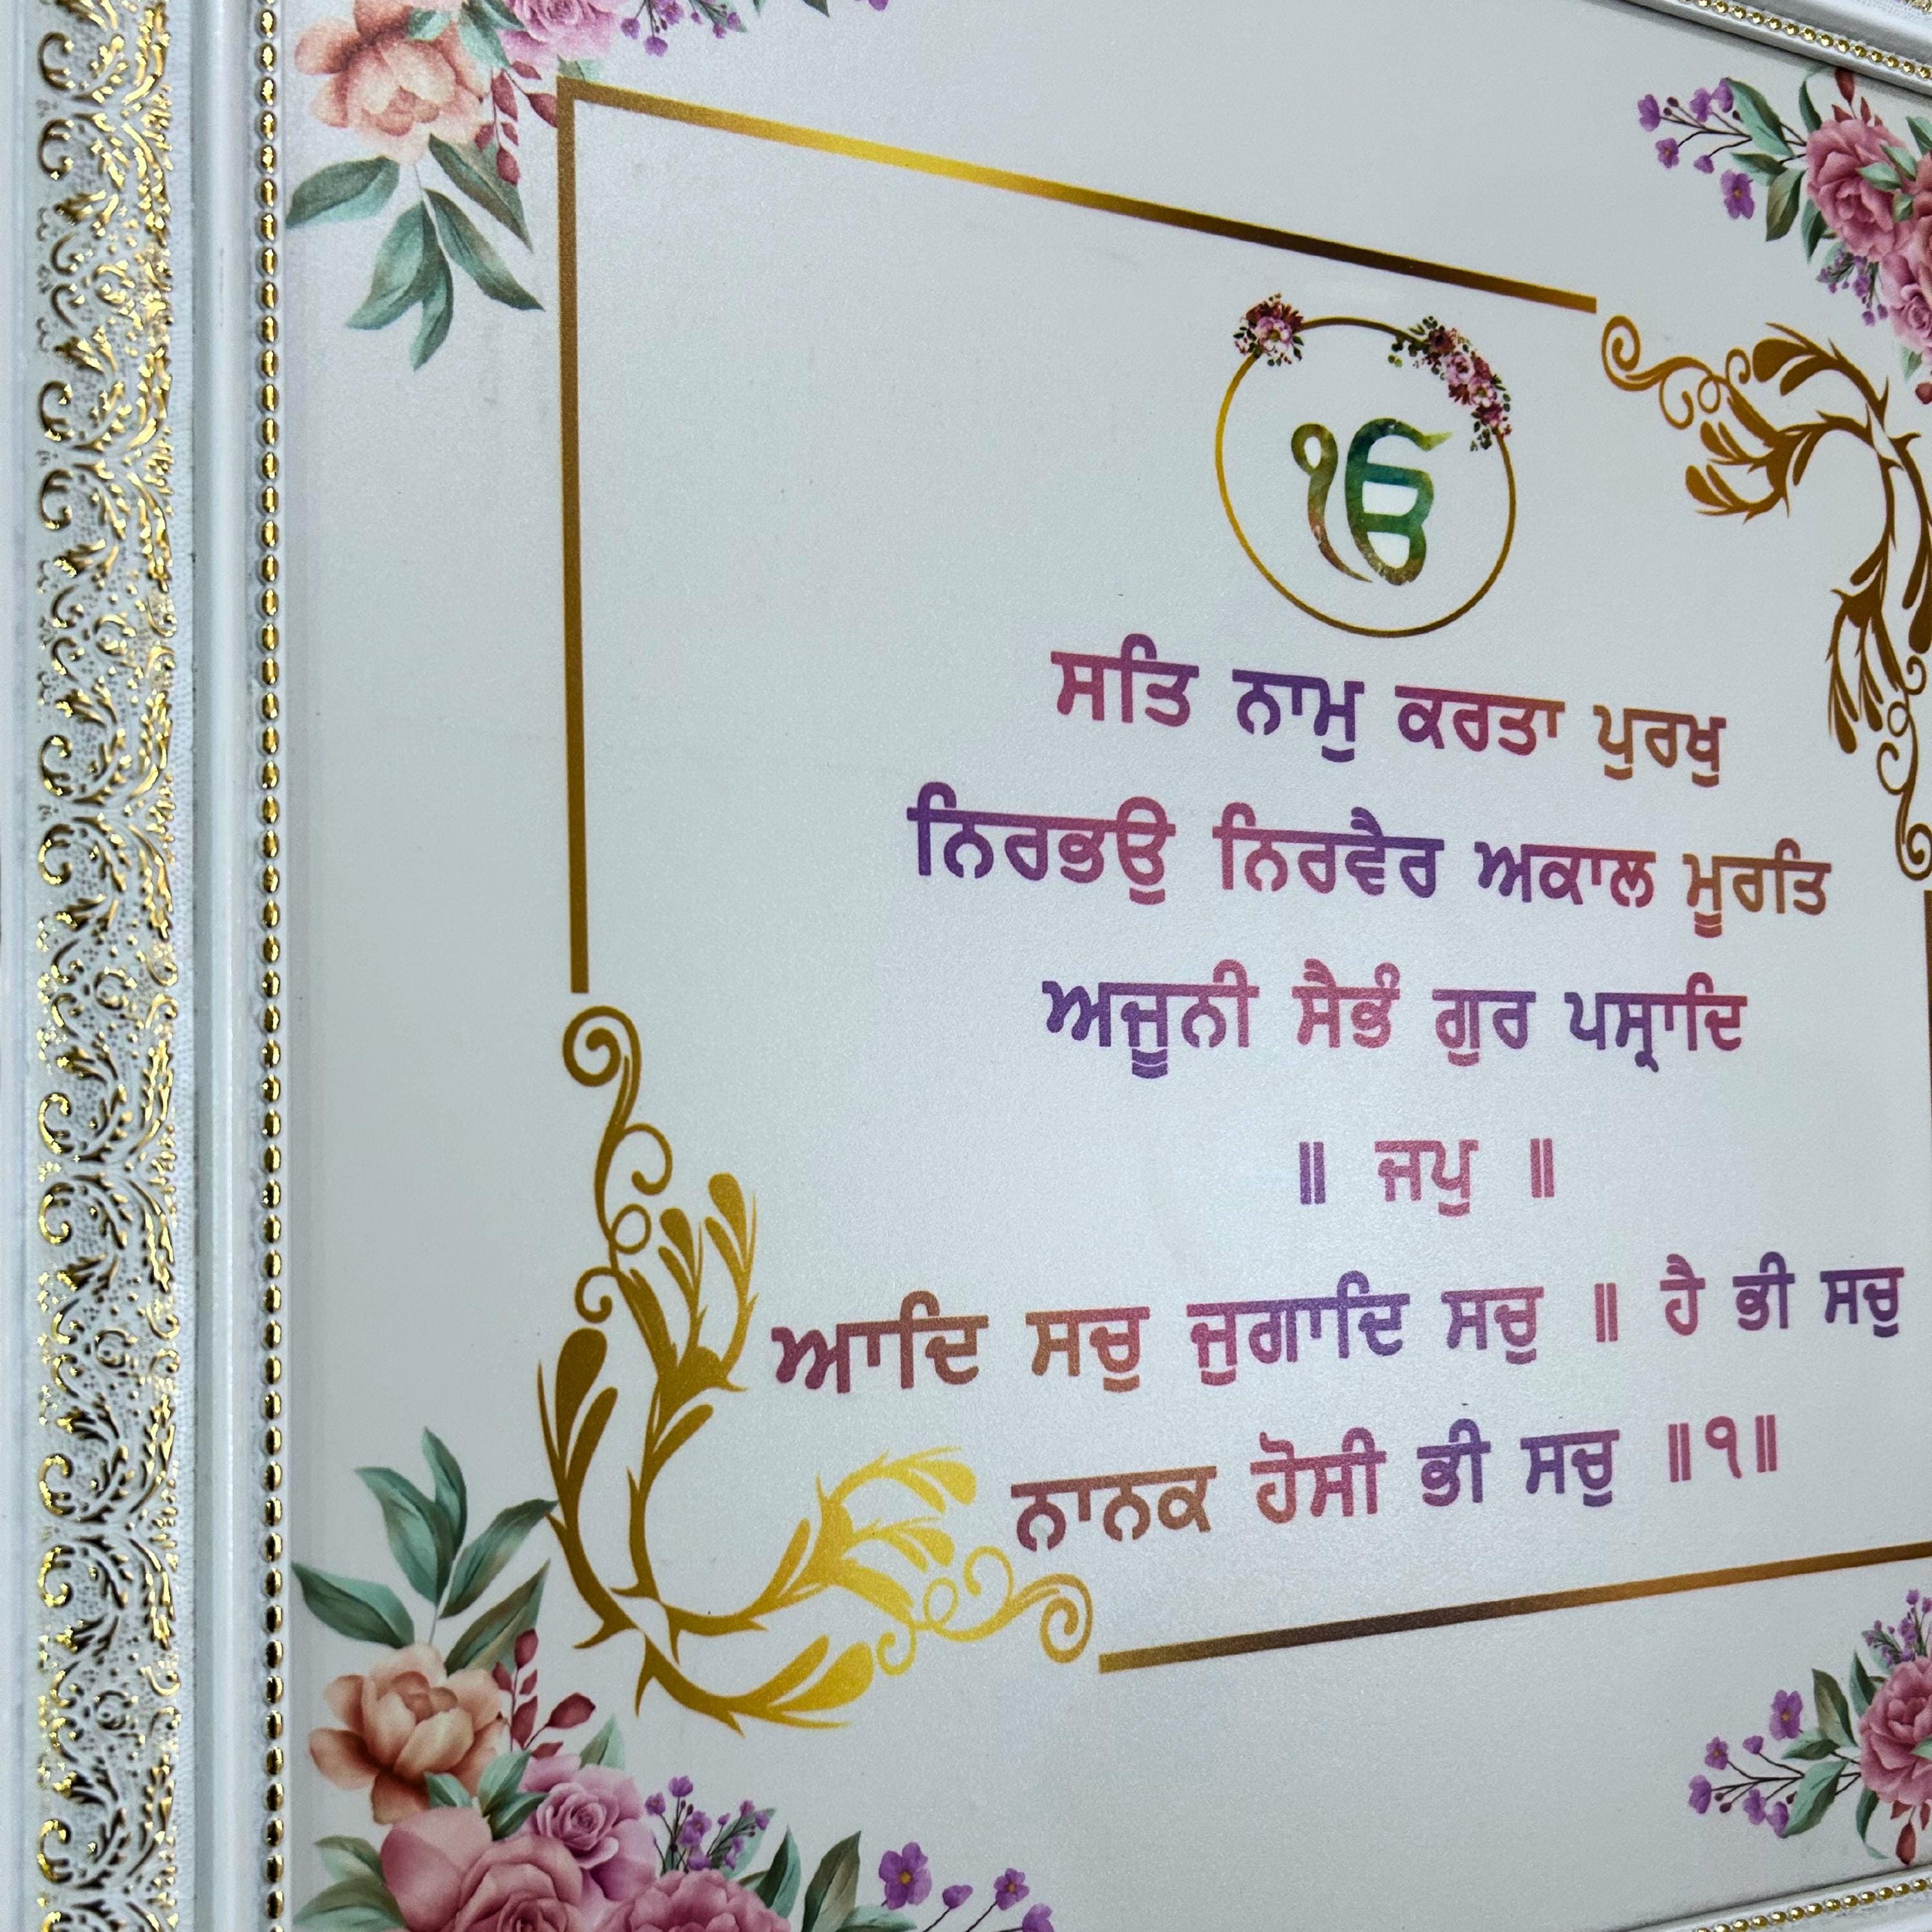 ੴ
ਸਤਿ ਨਾਮੁ ਕਰਤਾ ਪੁਰਖੁ
ਨਿਰਭਉ ਨਿਰਵੈਰ ਅਕਾਲ ਮੂਰਤਿ
ਅਜੂਨੀ ਸੈਭੰ ਗੁਰ ਪਸ੍ਰਾਦਿ
॥ ਜਪੁ ॥
ਆਦਿ ਸਚੁ ਜੁਗਾਦਿ ਸਚੁ ॥ ਹੈ ਭੀ ਸਚੁ
ਨਾਨਕ ਹੋਸੀ ਭੀ ਸਚੁ ॥੧॥